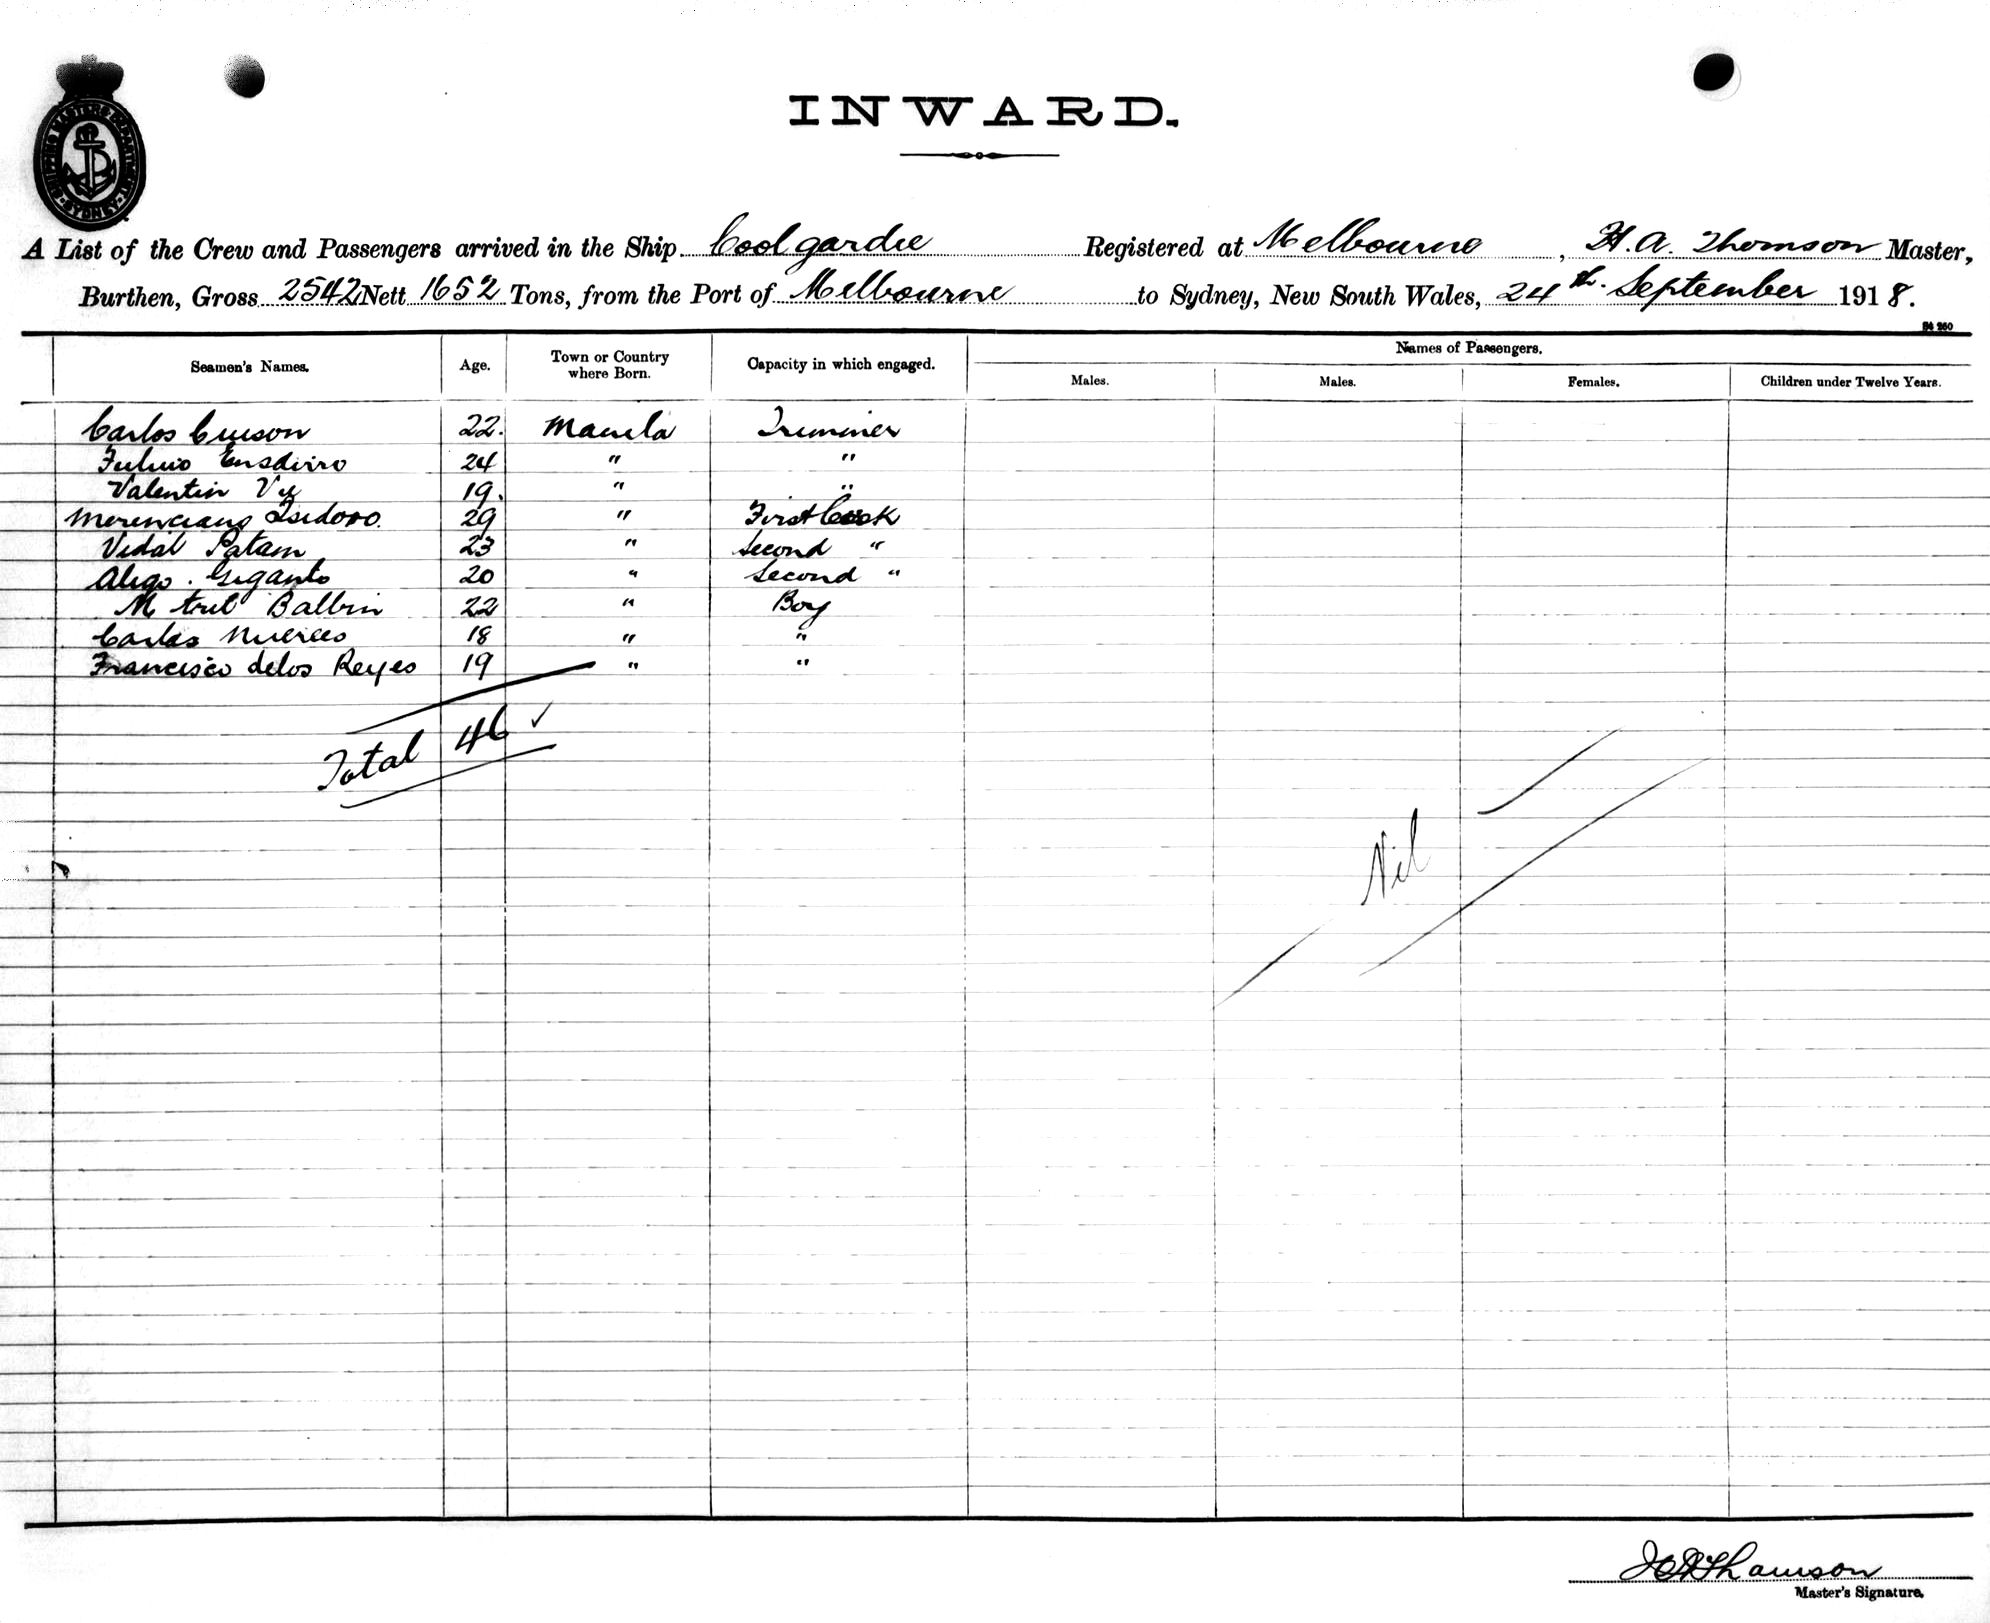 SHIPPING MASTERS DEPARTMENT SYDNEY
INWARD.
A List of the Crew and Passengers arrived in the Ship Coolgardie Registered at Melbourne, H. A. Thomson Master,
Burthen, Gross 2542 Nett 1652 Tons, from the Port of Melbourne to Sydney, New South Wales, 24th. September 1918.
Names of Passengers.
Seamen's Names. Age. Town or Country where Born. Capacity in which engaged. Males. Males. Females. Children under Twelve Years.
Carlos 22. Manila Trimmer
24 " "
Valentin 19. " "
Isidoro. 29 " First Cook
Vidal Patam 23 " Second "
Giganto 20 " Second "
M Balbin 22 " Boy
Carlos 18 " "
Francisco delos Reyes 19 " "
Total 46 ✓
Nil
H A Thomson
Master's Signature.